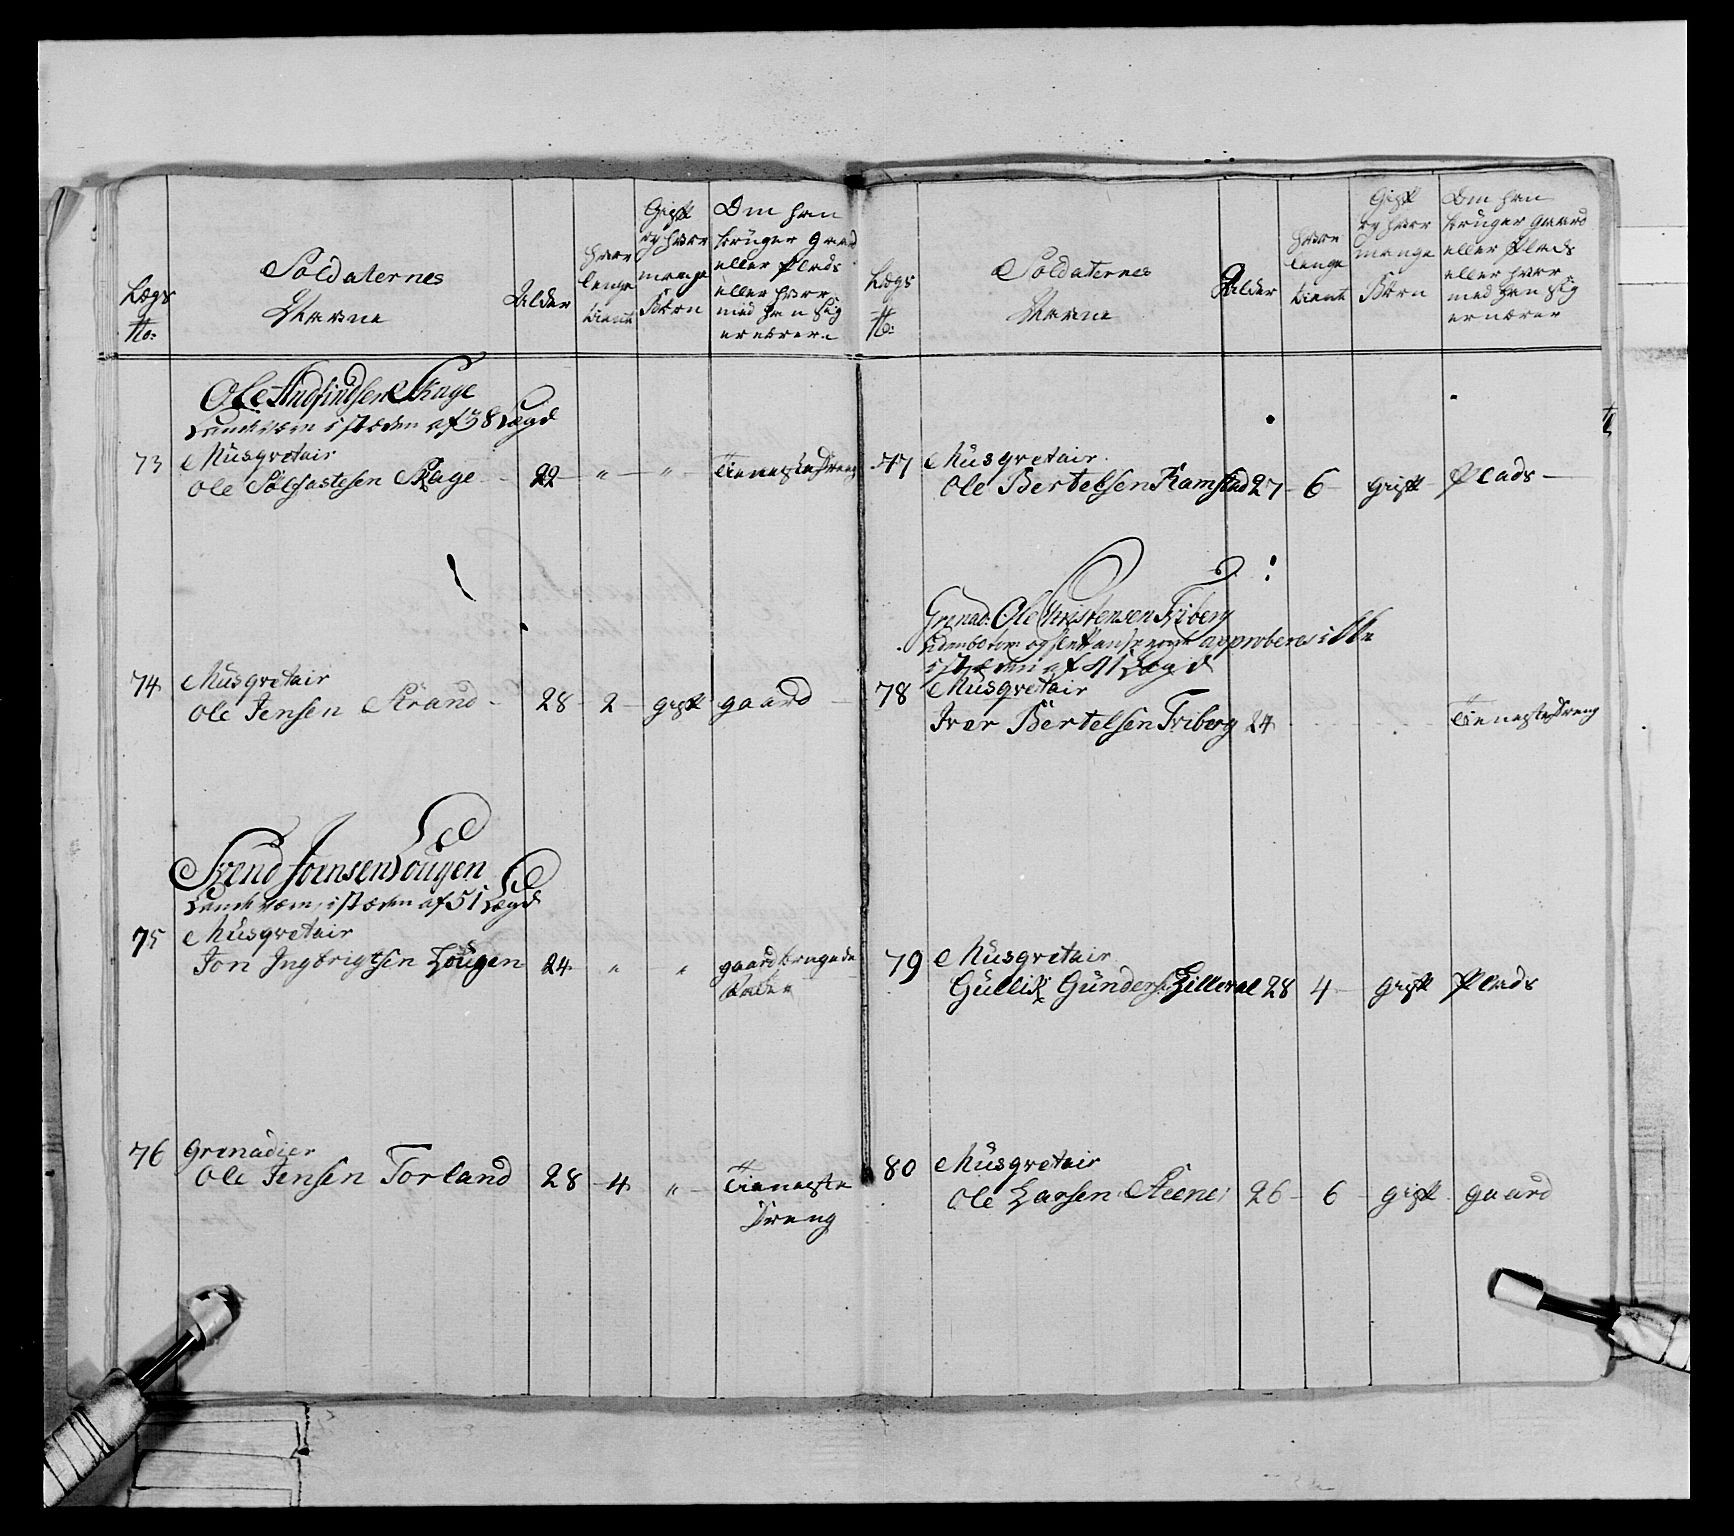 Lægs
No:
Soldaternes
Navne
Alder
hvor
lenge
tient
Gift
og hvor
mange
Børn
Om han
bruger gaard
eller Plads
eller hvor
med han sig
ernærer.
Ole Andfindsen Skage
Landværn i stæden af 38 Lægd
73 Musqvetair
Ole Solfastesen Skage 22 " " Tieneste Dreng
74 Musqvetair
Ole Jensen Strand 28 2 gift gaard
Svend Joensen Lougen
Landværn i stæden af 51 Lægd
75 Musqvetair
Jon Ingbrigtsen Lougen 24 " " gaardbrugende
76 Grenadier
Ole Jensen Torland 28 4 " Tieneste
Dreng
Lægs
No:
Soldaternes
Navne
Alder
hvor
lenge
tient
Gift
og hvor
mange
Børn
Om han
bruger gaard
eller Plads
eller hvor
med han sig
ernærer
77 Musqvetair
Ole Bertelsen Ramstad 27 6 gift Plads
Grenad. Ole Christensen Friberg
approberes ikke
i stæden af 41 Lægd
78 Musqvetair
Iver Bertelsen Friberg 24 Tieneste Dreng
79 Musqvetair
Gullik Gunders. Lilleval 28 4 gift Plads
80 Musqvetair
Ole Larsen Steene 26 6 gift gaard